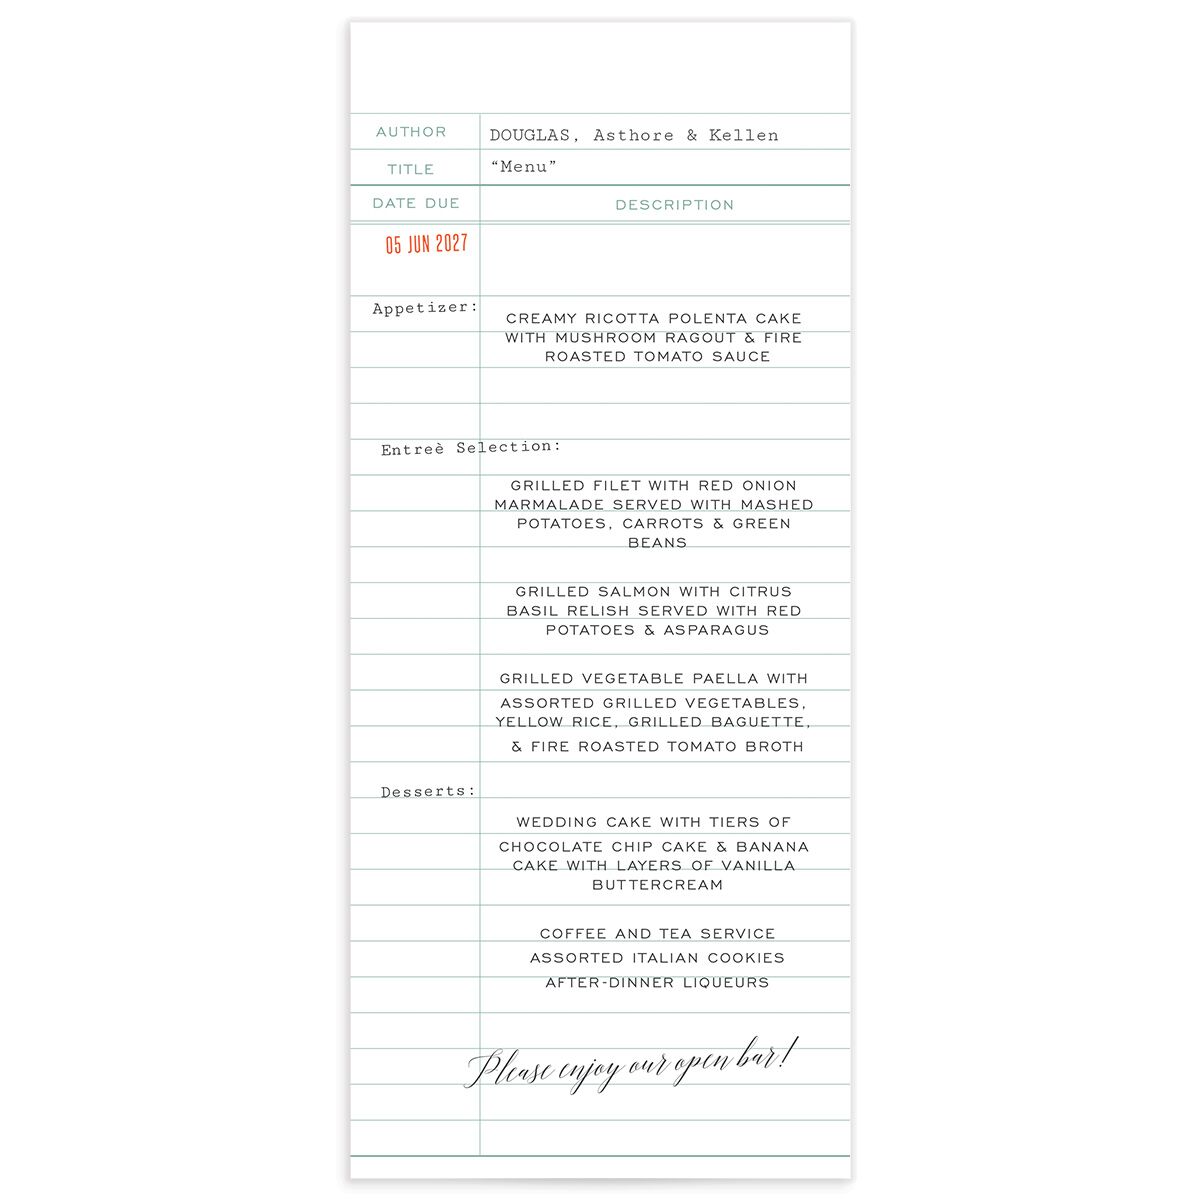 AUTHOR DOUGLAS, Asthore & Kellen
TITLE “Menu”
DATE DUE DESCRIPTION
05 JUN 2027
Appetizer:
CREAMY RICOTTA POLENTA CAKE
WITH MUSHROOM RAGOUT & FIRE
ROASTED TOMATO SAUCE
Entreè Selection:
GRILLED FILET WITH RED ONION
MARMALADE SERVED WITH MASHED
POTATOES, CARROTS & GREEN
BEANS
GRILLED SALMON WITH CITRUS
BASIL RELISH SERVED WITH RED
POTATOES & ASPARAGUS
GRILLED VEGETABLE PAELLA WITH
ASSORTED GRILLED VEGETABLES,
YELLOW RICE, GRILLED BAGUETTE,
& FIRE ROASTED TOMATO BROTH
Desserts:
WEDDING CAKE WITH TIERS OF
CHOCOLATE CHIP CAKE & BANANA
CAKE WITH LAYERS OF VANILLA
BUTTERCREAM
COFFEE AND TEA SERVICE
ASSORTED ITALIAN COOKIES
AFTER-DINNER LIQUEURS
Please enjoy our open bar!